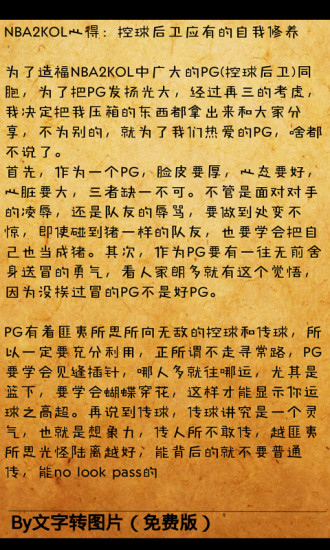 NBA2KOL心得：控球后卫应有的自我修养
为了造福NBA2KOL中广大的PG(控球后卫)同
胞，为了把PG发扬光大，经过再三的考虑，
我决定把我压箱的东西都拿出来和大家分
享，不为别的，就为了我们热爱的PG，啥都
不说了。
首先，作为一个PG，脸皮要厚，心态要好，
心脏要大，三者缺一不可。不管是面对对手
的凌辱，还是队友的辱骂，要做到处变不
惊，即使碰到猪一样的队友，也要学会把自
己也当成猪。其次，作为PG要有一往无前舍
身送冒的勇气，看人家朗多就有这个觉悟，
因为没挨过冒的PG不是好PG。
PG有着匪夷所思所向无敌的控球和传球，所
以一定要充分利用，正所谓不走寻常路，PG
要学会见缝插针，哪人多就往哪运，尤其是
篮下，要学会蝴蝶穿花，这样才能显示你运
球之高超。再说到传球，传球讲究是一个灵
气，也就是想象力，传人所不敢传，越匪夷
所思光怪陆离越好，能背后的就不要普通
传，能no look pass的
By文字转图片（免费版）